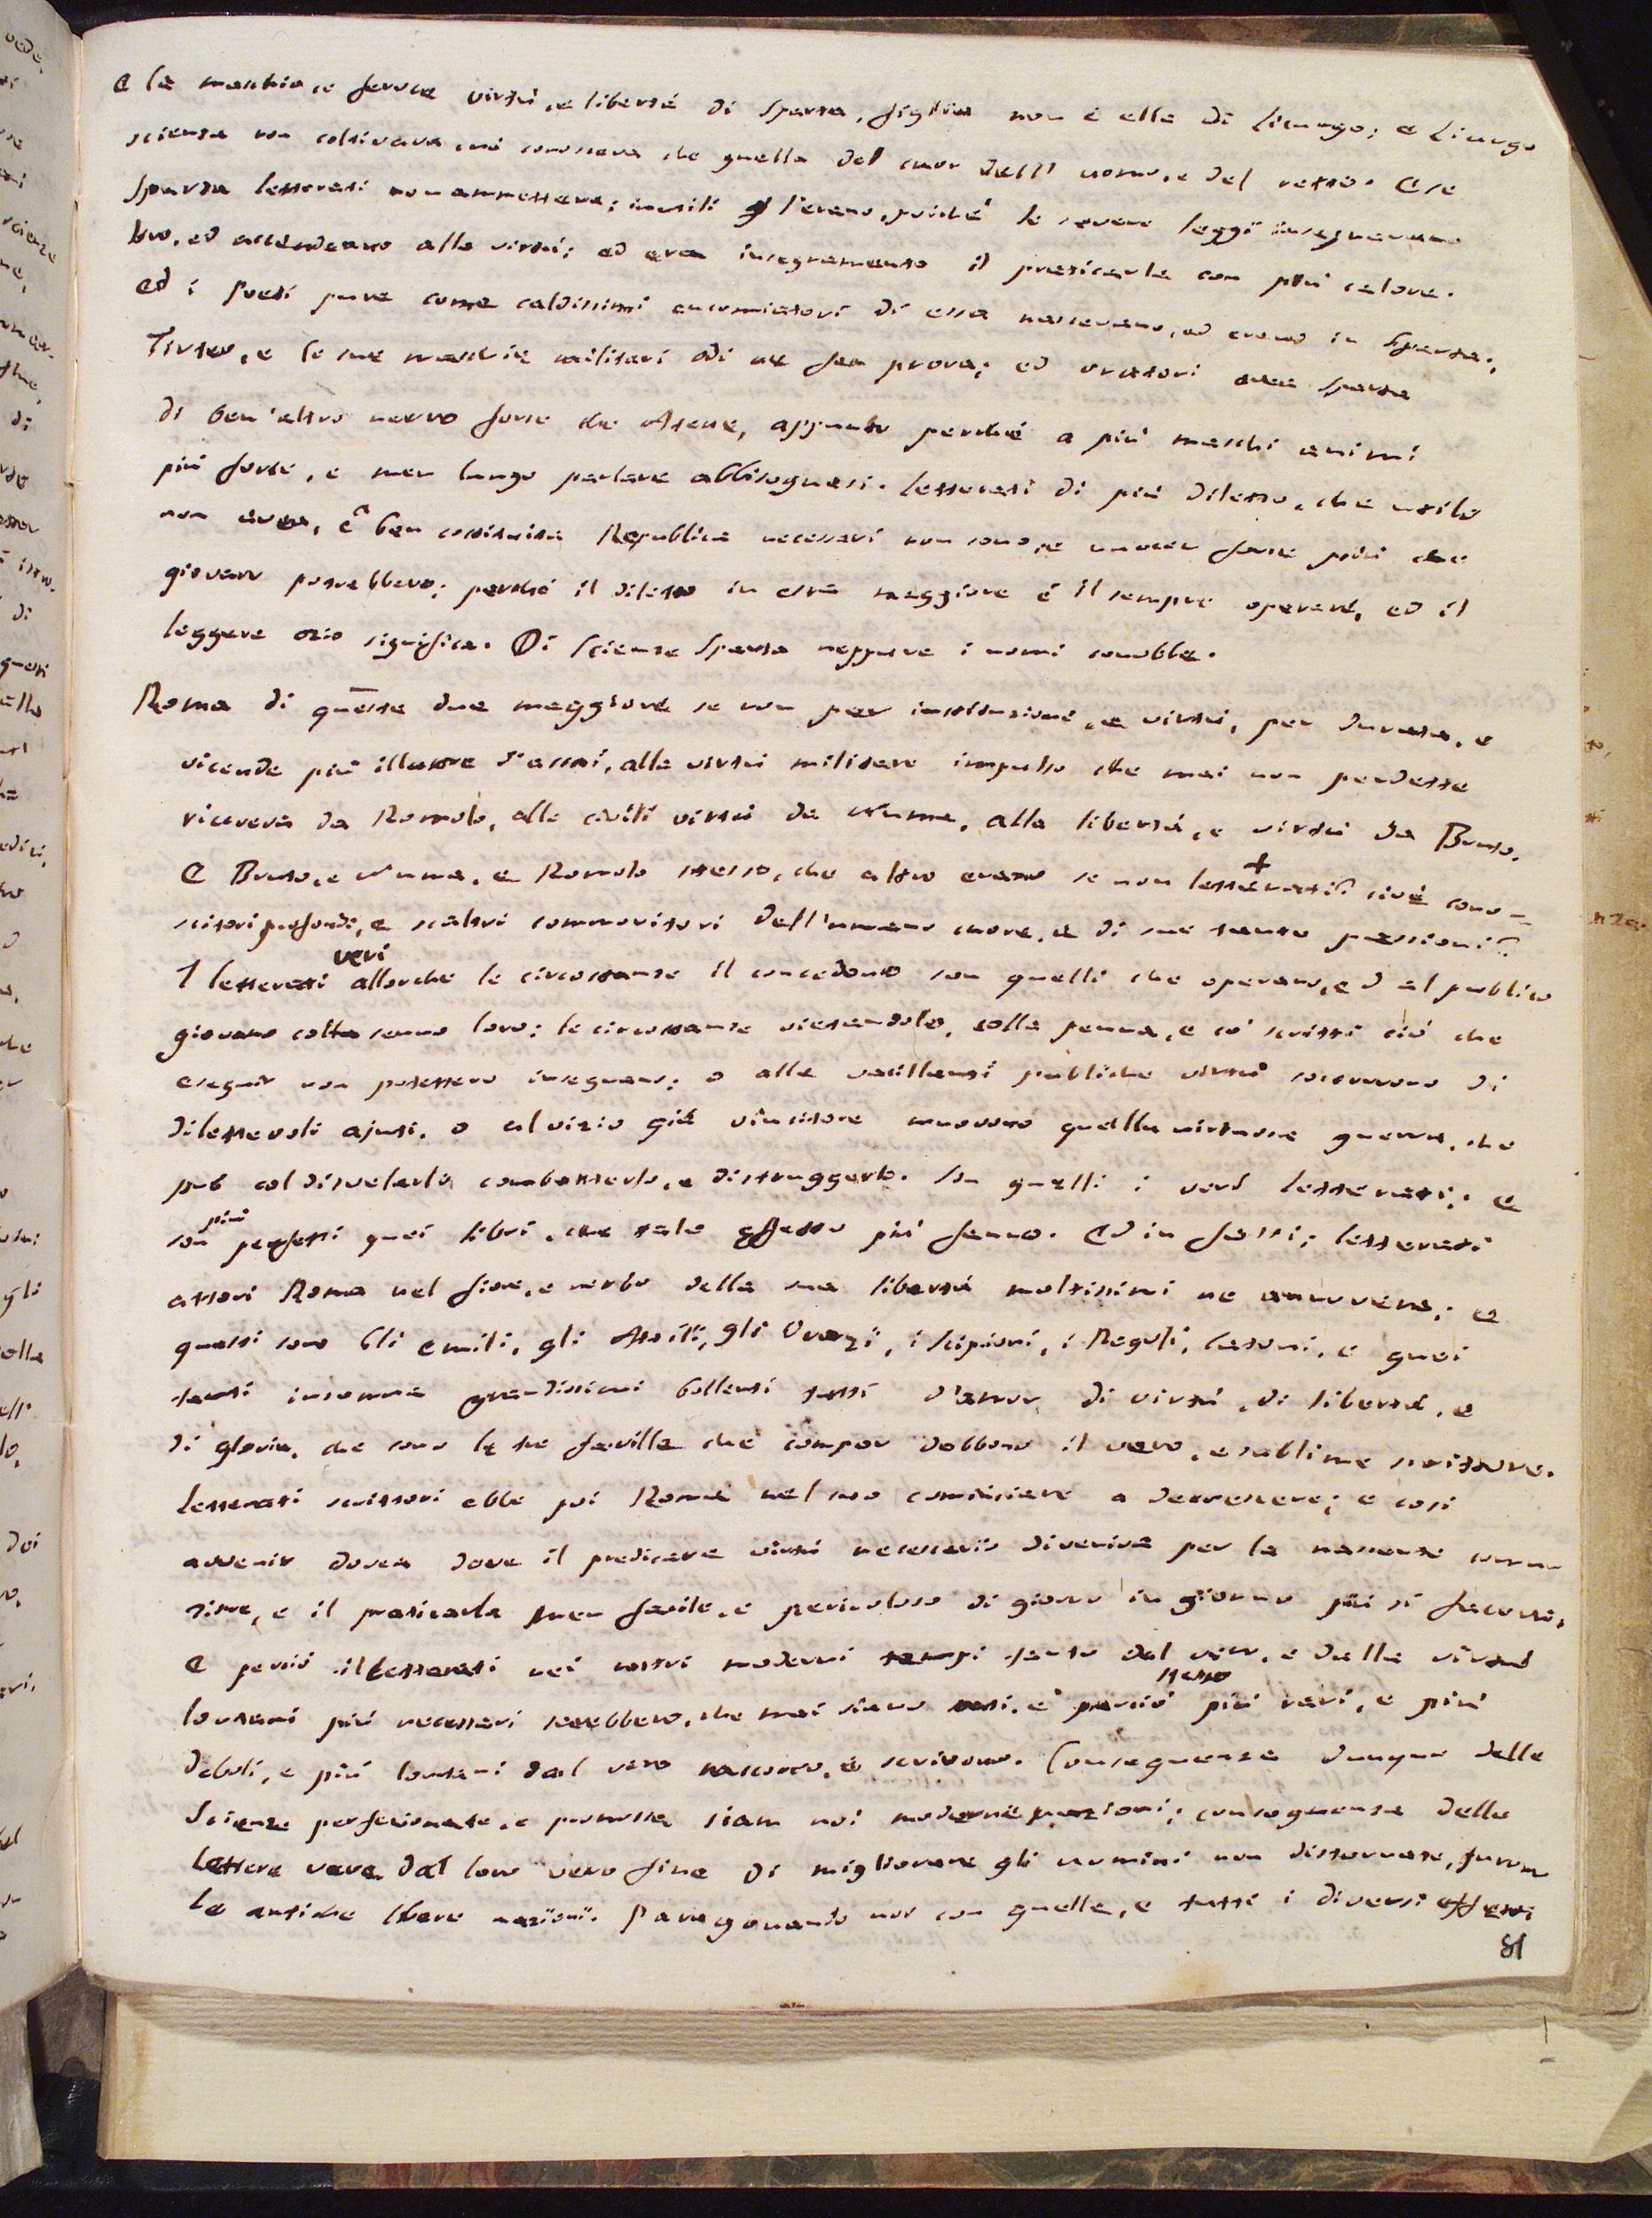 E la maschia, e feroce virtù, e libertà di Sparta, figlia non è ella di Licurgo; e Licurgo
scienza non coltivava, nè conosceva che quella del cuor dell'uomo, e del retto. E se
Sparta letterati non ammetteva; inutili l'erano, poiché le severe leggi insegnavano
loro, ed accendeano alla virtù; ed era insegnamento il praticarla con più calore.
ed i Poeti pure come caldissimi encomiatori di essa nascevano, ed erano in Sparta;
Tirteo, e le sue maschie militari odi ne fan prova; ed oratori avea Sparta
di ben'altro nervo forse che Atene, appunto perché a più maschi animi
più forte, e men lungo parlare abbisognasi. Letterati di più diletto, che utile
non avea, è ben costituita Republica necessari non sono, e nuocer forse più che
giovare potrebbero; perché il diletto in essa maggiore è il sempre operare, ed il
leggere ozio significa. Di Scienze Sparta neppure i nomi conobbe.
Roma di queste due maggiore se non per instituzione, e virtù, per durata, e
vicende più illustre d'assai, alla virtù militare impulso che mai non perdette
riceveva da Romolo, alle civili virtù da Numa, alla libertà, e virtù da Bruto.
E Bruto, e Numa, e Romolo stesso, che altro erano se non letterati? + cioè cono-
scitori profondi, e scaltri commovitori dell'umano cuore, e di sue tante passioni?
I letterati veri allorche le circostanze il concedono son quelli che operano, ed al publico
giovano colla senno loro; le circostanze vietandolo, colla penna, e co' scritti ciò che
eseguir non potettero insegnano; o alle vacillanti publiche virtù soccorrono di
dilettevoli ajuti, o al vizio già vincitore muovono quella virtuosa guerra, che
può col disvelarlo combatterlo, e distruggerlo. Son quelli i veri letterati; e
son più perfetti quei libri, che tale effetto più fanno. Ed in fatti; letterati
attori Roma nel fiore, e nerbo della sua libertà moltissimi ne annovera; e
questi sono Gli Emili, gli Attilii, gli Orazii, i Scipioni, i Regoli, Catoni, e quei
tanti insomma grandissimi bollenti tutti d'amor di virtù, di libertà, e
di gloria, che sono le tre faville che compor debbono il vero, e sublime scrittore.
Letterati scrittori ebbe poi Roma nel suo cominciare a decrescere; e così
avvenir dovea dove il predicare virtù necessario diveniva per la nascente corru
zione, e il praticarla men facile, e pericoloso di giorno in giorno più si facevano.
E perciò i letterati nei nostri moderni tempi tanto dal vero, e dalla virtù
lontani più necessari sarebbero, che mai siano stati, e perciò stesso più rari, e più
deboli, e più lontani dal vero nascono, e scrivono. Conseguenza dunque delle
Scienze perfezionate, e promosse siam noi moderne nazioni; conseguenza delle
Lettere vere dal loro vero fine di migliorare gli uomini non distornate, furon
le antiche libere nazioni. Paragonando noi con quelle, e tutti i diversi effetti
81